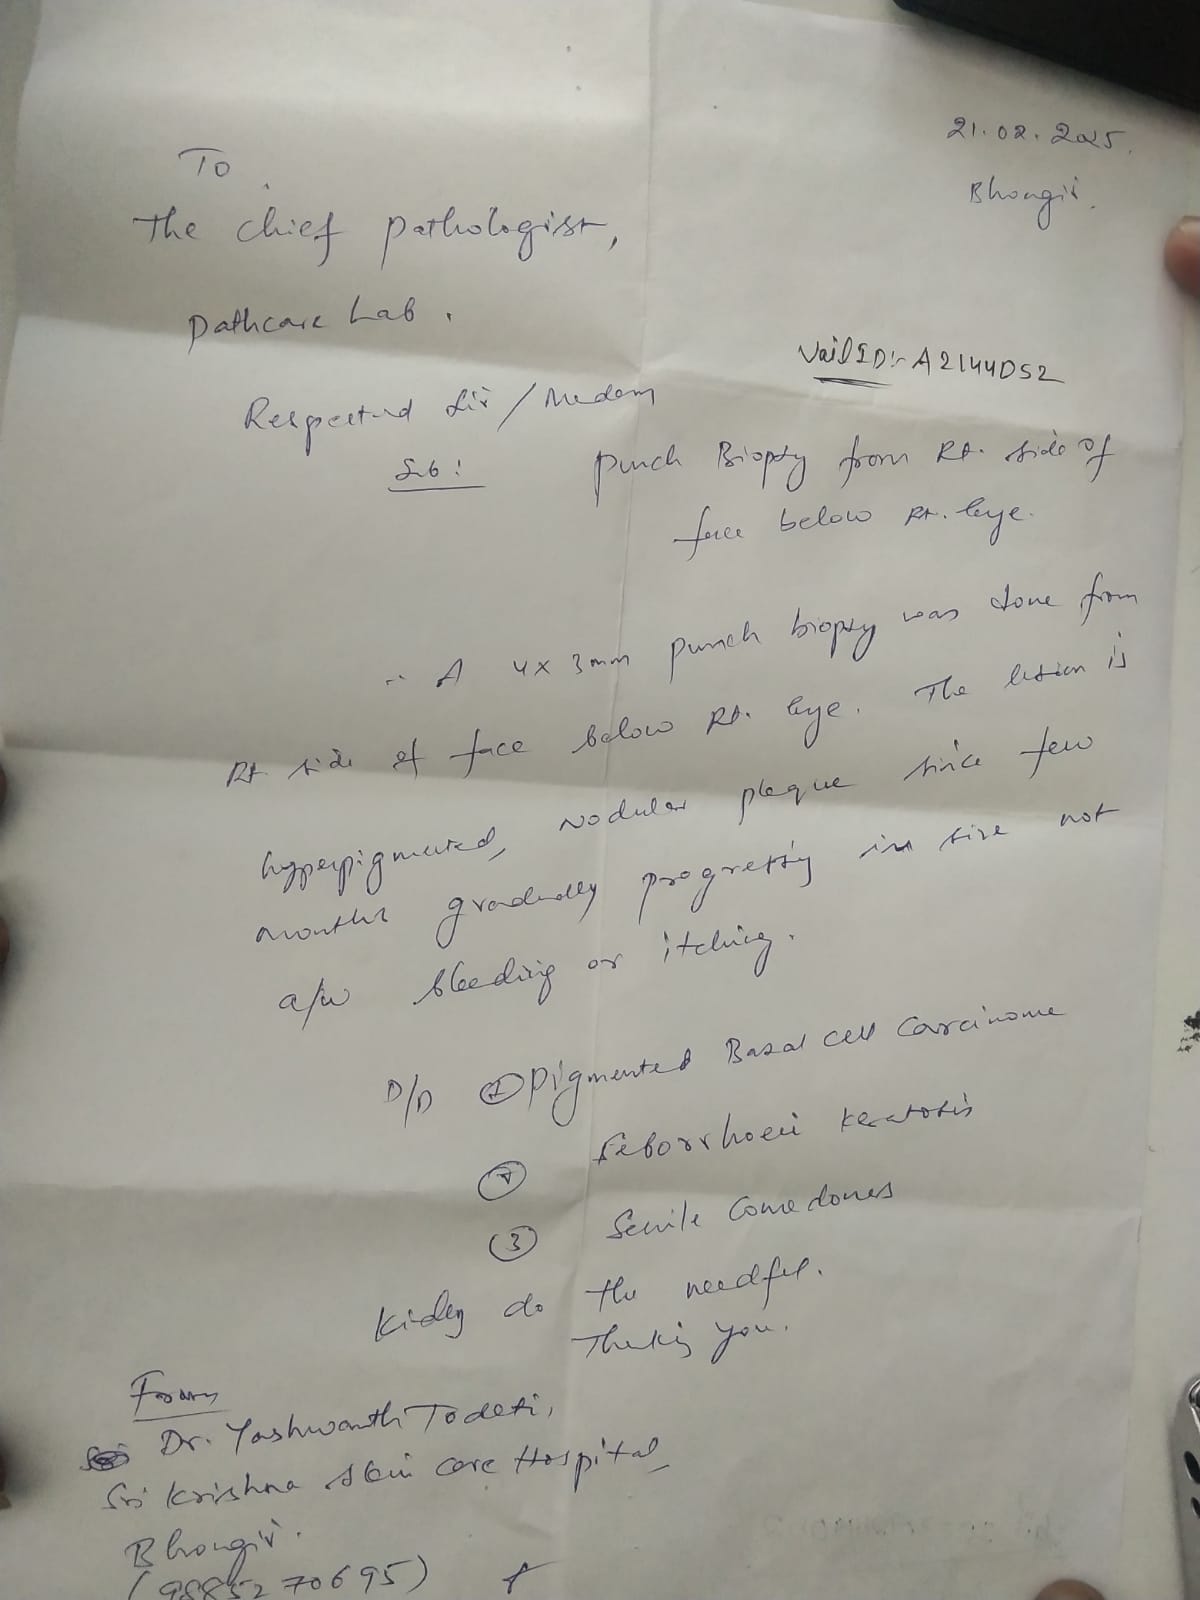 21.02.2025.
Bhongir.
To
The Chief pathologist,
Pathcare Lab.
Vail ID:- A2144D52
Respected Sir/Madam
Sub:
Punch Biopsy from Rt. side of
face below Rt. eye.
A 4x3mm punch biopsy was done from
Rt. side of face below Rt. eye. The lesion is
hyperpigmented, nodular plaque since few
months gradually progressing in size not
a/w bleeding or itching.
D/D ① Pigmented Basal cell Carcinoma
② Seborrhoeic keratosis
③ Senile Comedones
Kindly do the needful.
Thanking you.
From
Dr. Yashwanth Todeti,
Sri Krishna Skin Care Hospital,
Bhongir.
(9885270695)